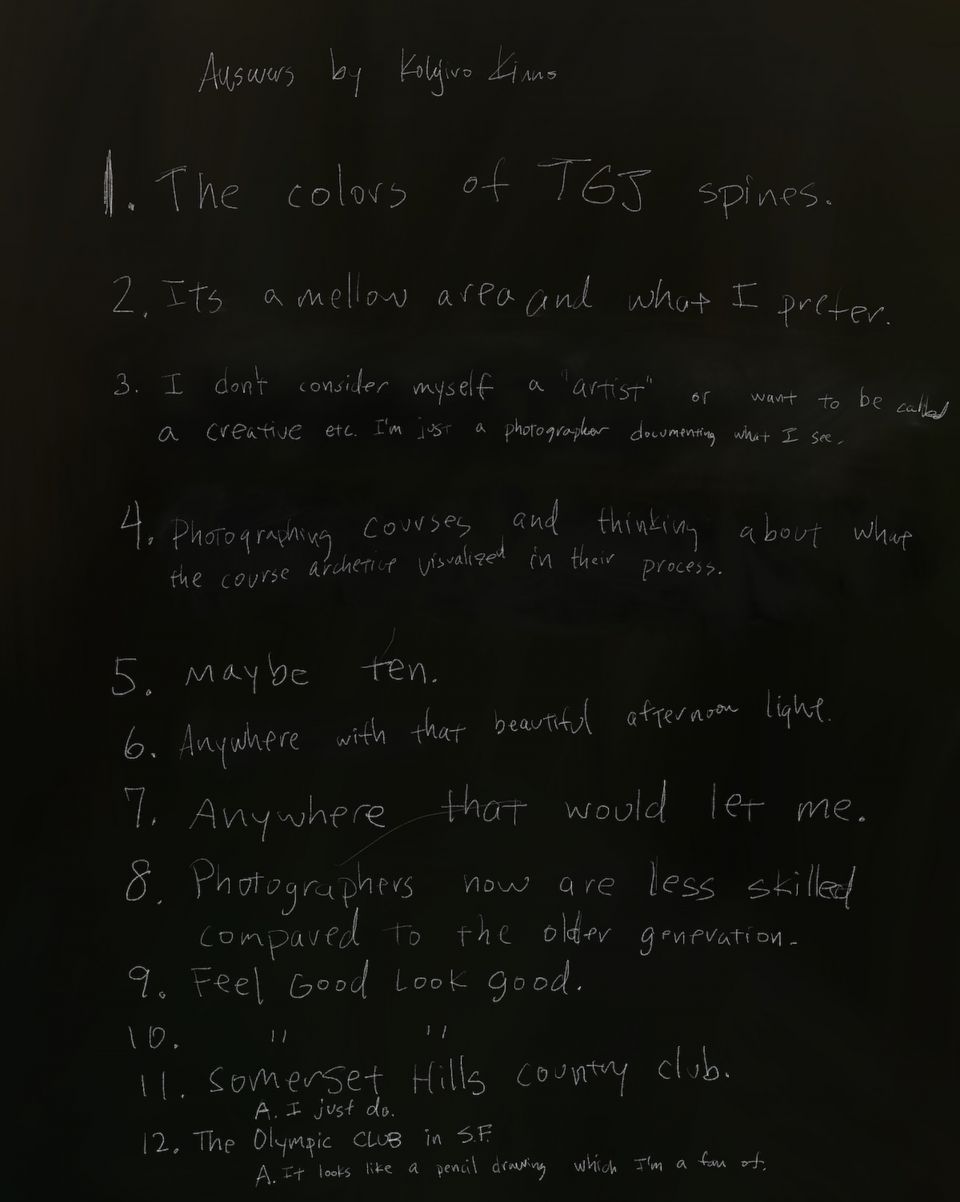 Answers by Kohjiro Kinno
1. The colors of TGJ spines.
2. Its a mellow area and what I prefer.
3. I don't consider myself a "artist" or want to be called
a creative etc. I'm just a photographer documenting what I see.
4. Photographing courses and thinking about what
the course archetice visualized in their process.
5. maybe ten.
6. Anywhere with that beautiful afternoon light.
7. Anywhere that would let me.
8. Photographers now are less skilled
compared to the older generation.
9. Feel Good Look good.
10. " "
11. Somerset Hills country club.
A. I just do.
12. The Olympic CLUB in S.F.
A. It looks like a pencil drawing which I'm a fan of.